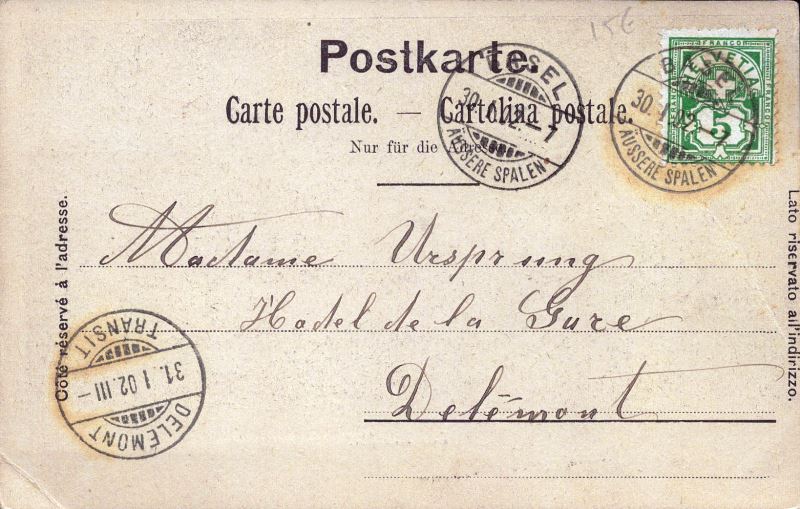 15€
Postkarte.
Carte postale. — Cartolina postale.
Nur für die Adresse
FRANCO
HELVETIA
5
BASEL
30. I. 02. – 7
ÄUSSERE SPALEN
BASEL
30. I. 02. – 7
ÄUSSERE SPALEN
Côté réservé à l'adresse.
Lato riservato all'indirizzo.
Madame Ursprung
Hodel de la Gare
Delémont
TRANSIT
31. I 02. III –
DELÉMONT